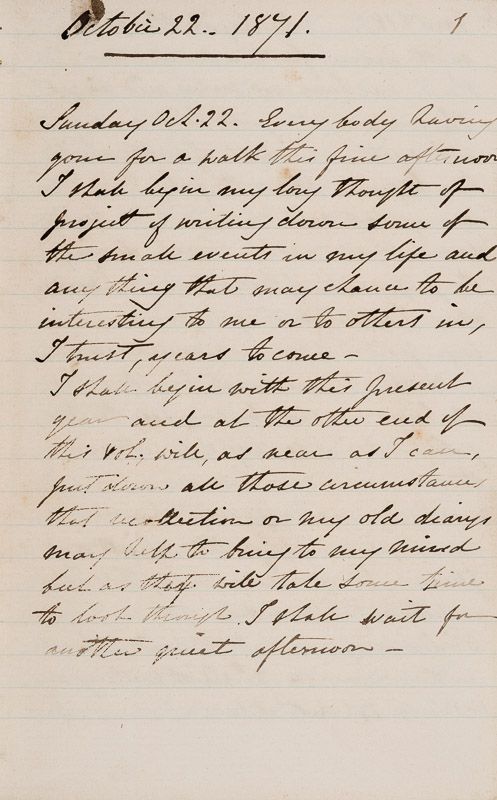 October 22.. 1871.
1
Sunday Oct. 22. Every body having
gone for a walk this fine afternoon
I shall begin my long thought of
project of writing down some of
the small events in my life and
any thing that may chance to be
interesting to me or to others in,
I trust, years to come -
I shall begin with this present
year and at the other end of
this vol; will, as near as I can,
put down all those circumstances
that recollection or my old diarys
may help to bring to my mind
but as they will take some time
to look through, I shall wait for
another quiet afternoon -